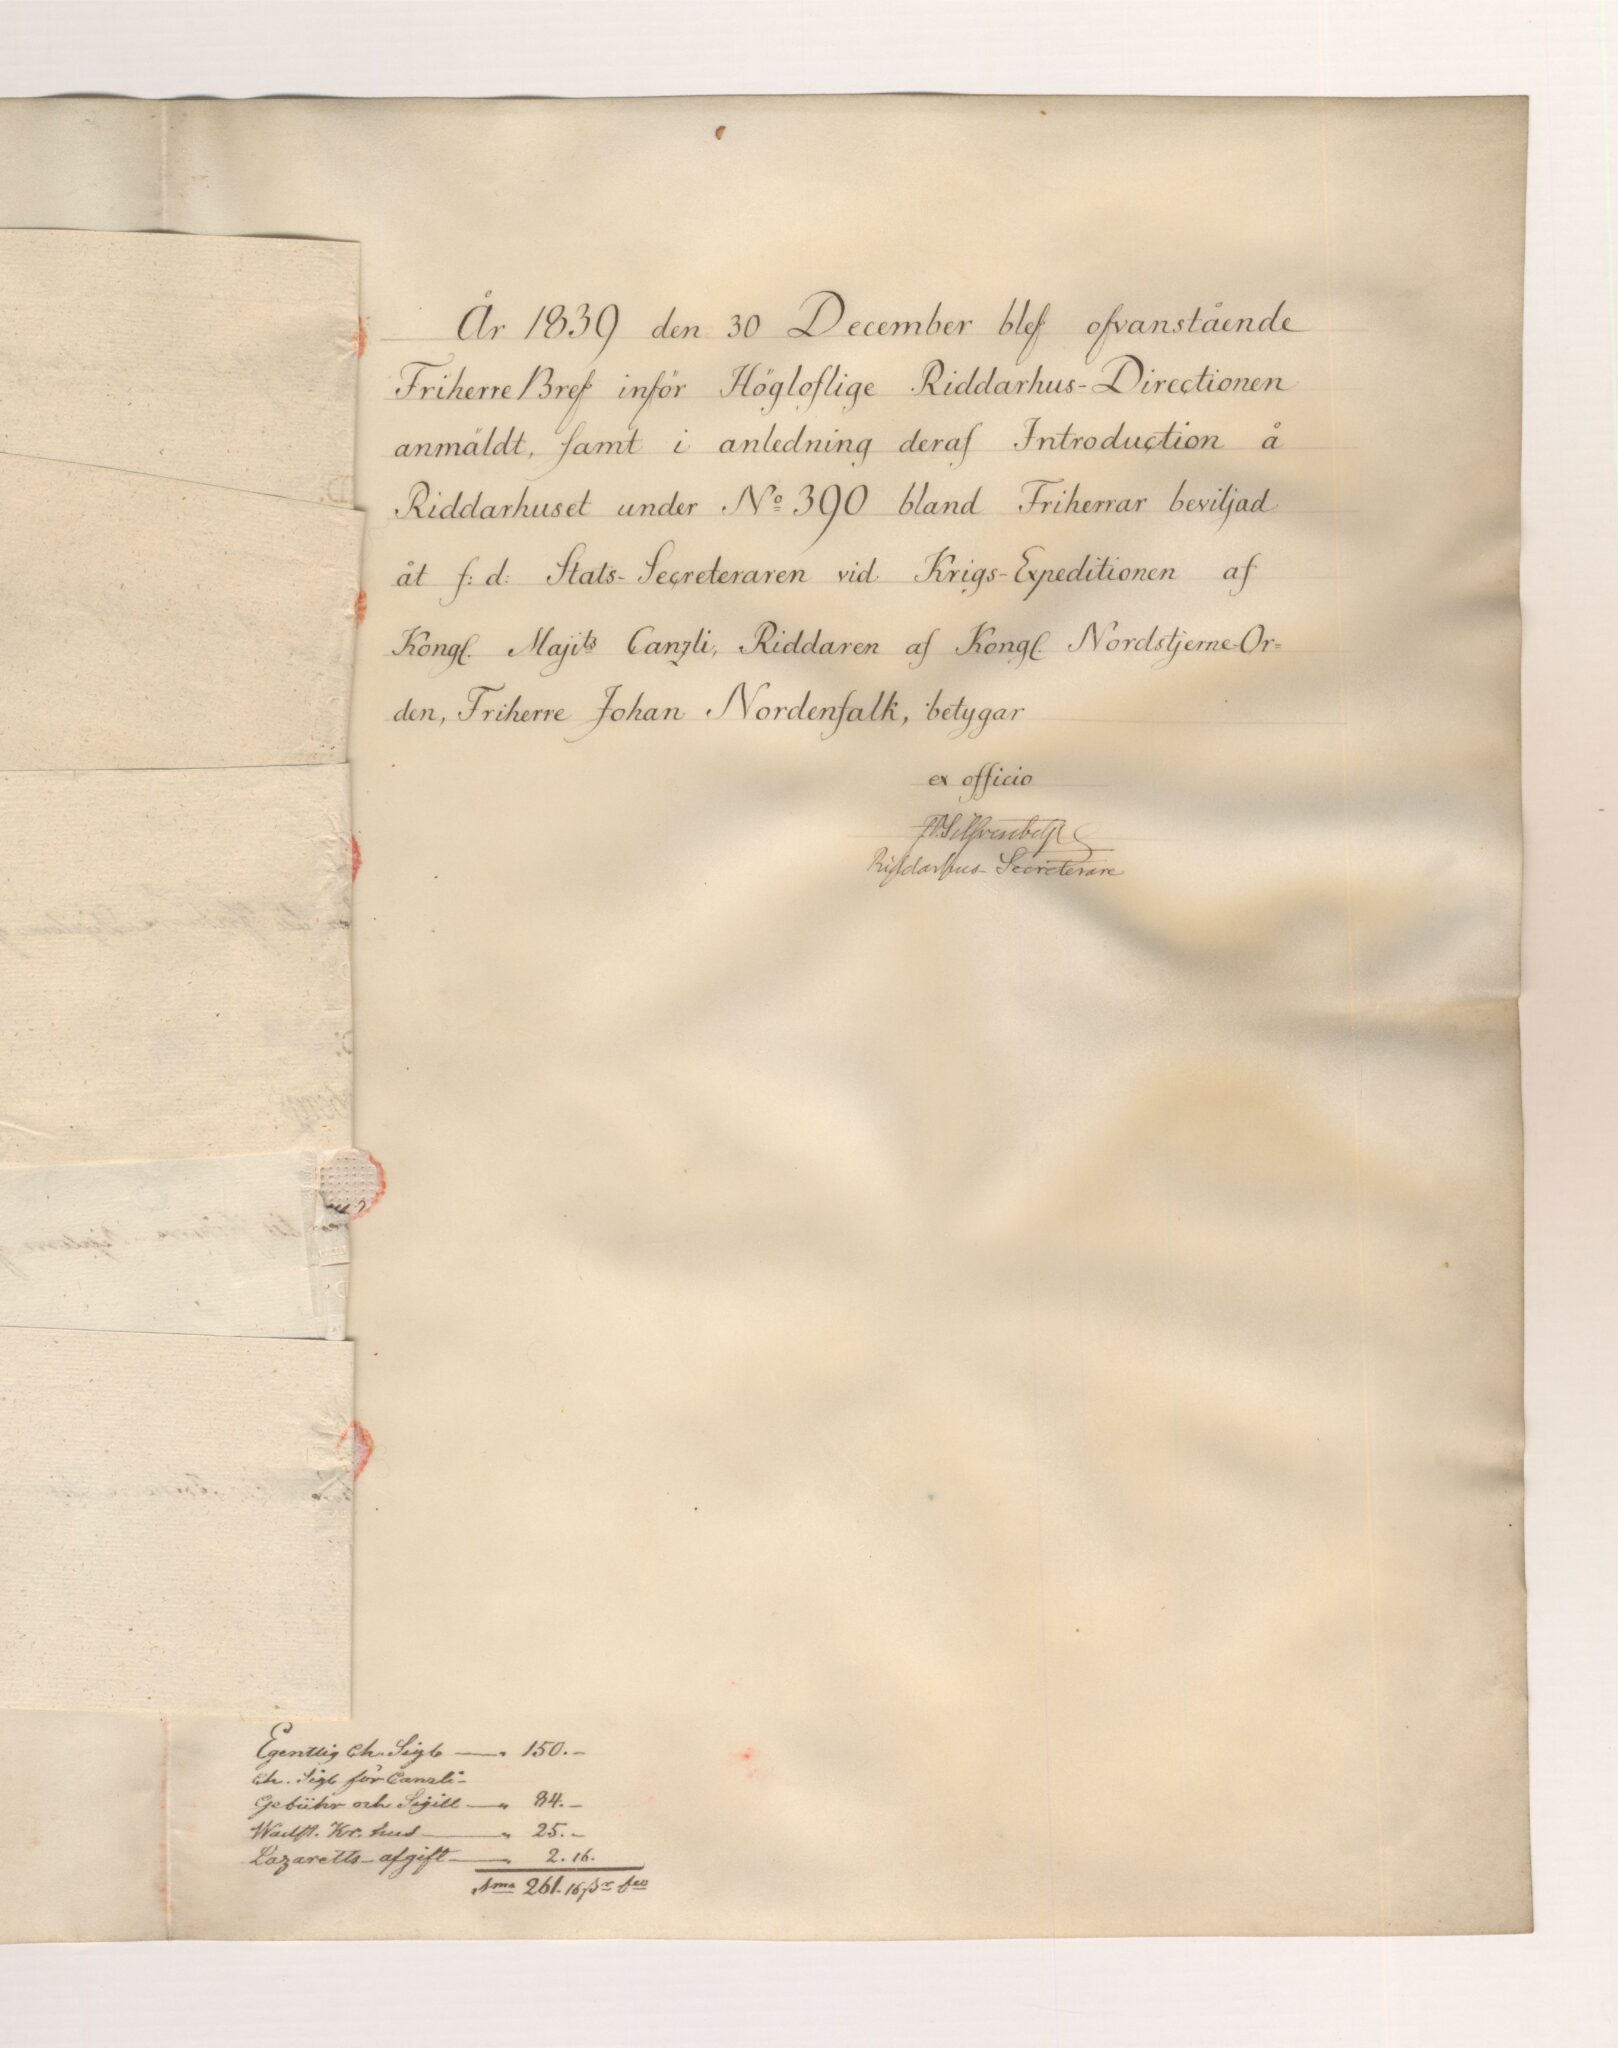 År 1839 den 30 December blef ofvanstående
Friherre Bref inför Högloflige Riddarhus-Directionen
anmäldt, samt i anledning deraf Introduction å
Riddarhuset under No 390 bland Friherrar beviljad
åt f: d: Stats-Secreteraren vid Krigs-Expeditionen af
Kongl. Majits Canzli, Riddaren af Kongl. Nordstjerne-Or=
den, Friherre Johan Nordenfalk, betygar
ex officio
Riddarhus-Secreterare
Egentlig Ch. Sigb — „ 150.–
Ch. Sigb för Canzli-
Gebühr och Sigill — „ 84.–
Wadst. Kr. hus — „ 25.–
Lazaretts-afgift — „ 2. 16.
Sma 261. 16